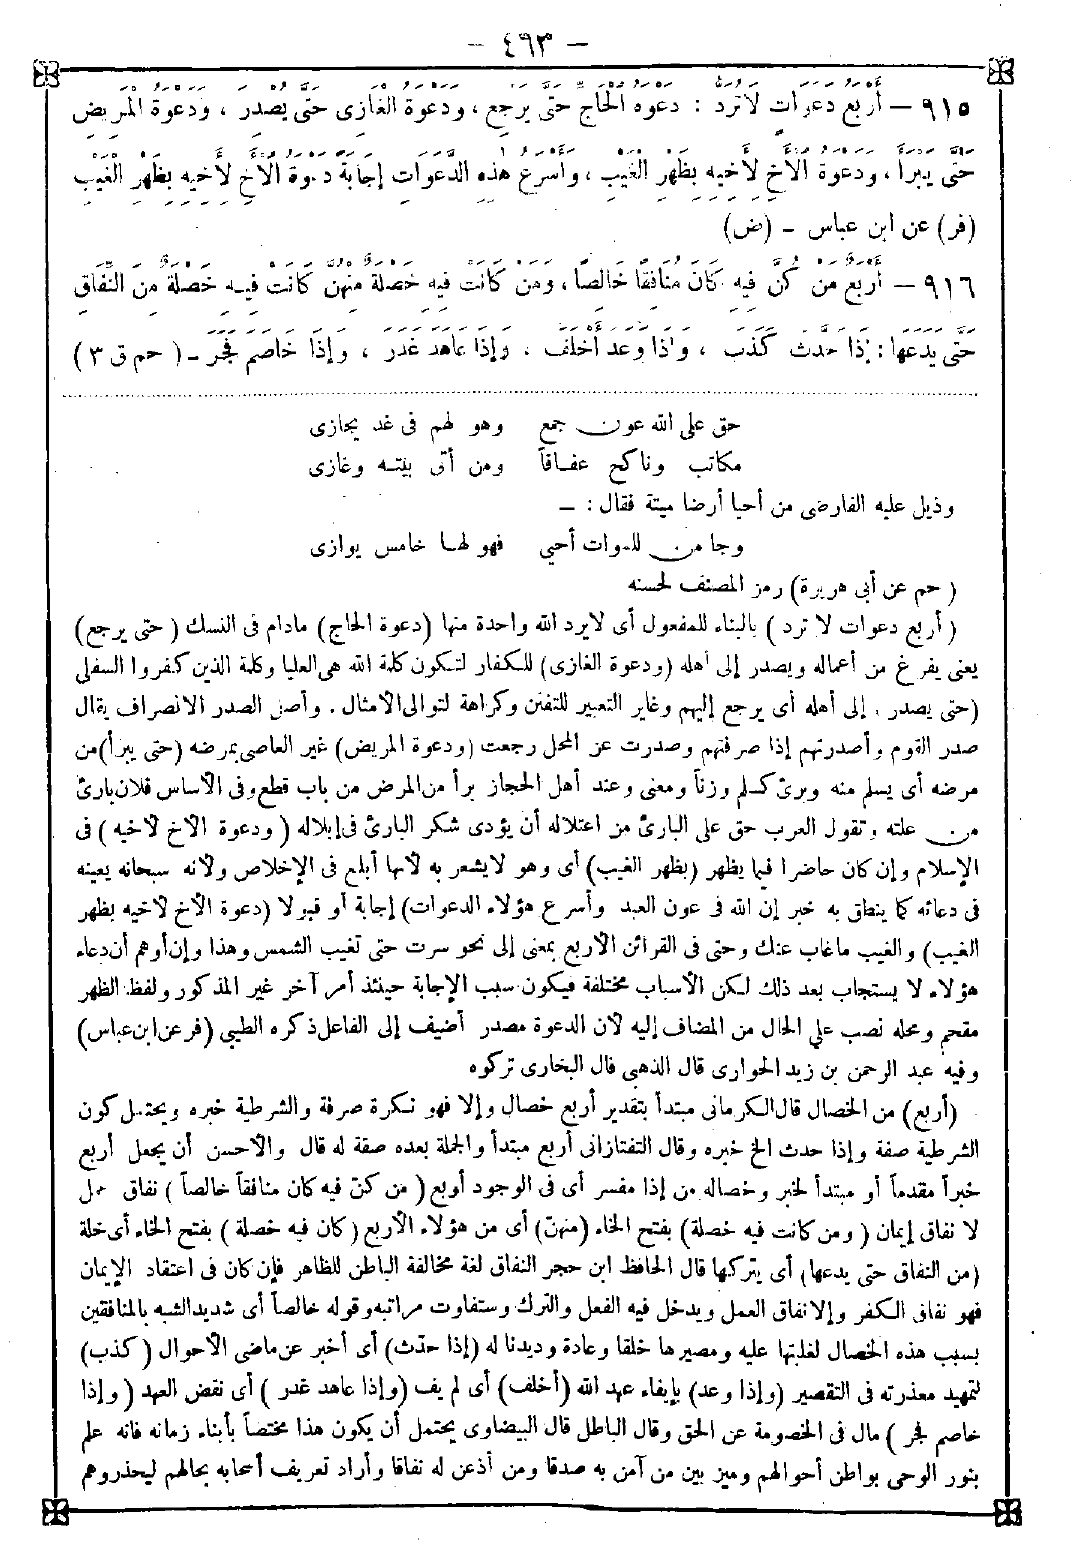 - ٤٦٣ -
٩١٥ - أَرْبَعُ دَعَوَاتٍ لَا تُرَدُّ : دَعْوَةُ الْحَاجِّ حَتَّى يَرْجِعَ ، وَدَعْوَةُ الْغَازِى حَتَّى يَصْدُرَ ، وَدَعْوَةُ الْمَرِيضِ
حَتَّى يَبْرَأَ ، وَدَعْوَةُ الْأَخِ لِأَخِيهِ بِظَهْرِ الْغَيْبِ ، وَأَسْرَعُ هٰذِهِ الدَّعَوَاتِ إِجَابَةً دَعْوَةُ الْأَخِ لِأَخِيهِ بِظَهْرِ الْغَيْبِ
(فر) عن ابن عباس - (ض)
٩١٦ - أَرْبَعٌ مَنْ كُنَّ فِيهِ كَانَ مُنَافِقًا خَالِصًا ، وَمَنْ كَانَتْ فِيهِ خَصْلَةٌ مِنْهُنَّ كَانَتْ فِيهِ خَصْلَةٌ مِنَ النِّفَاقِ
حَتَّى يَدَعَهَا : إِذَا حَدَّثَ كَذَبَ ، وَإِذَا وَعَدَ أَخْلَفَ ، وَإِذَا عَاهَدَ غَدَرَ ، وَإِذَا خَاصَمَ فَجَرَ - ( حم ق ٣ )
حق على الله عون جمع وهو لهم فى غد يجازى
مكاتب وناكح عفافاً ومن أتى بيته وغازى
وذيل عليه الفارضى من أحيا أرضا ميتة فقال : -
وجا من للموات أحيى فهو لها خامس يوازى
( حم عن أبى هريرة) رمز المصنف لحسنه
( أربع دعوات لا ترد ) بالبناء للمفعول أى لايرد الله واحدة منها (دعوة الحاج) مادام فى النسك ( حتى يرجع)
يعنى يفرغ من أعماله ويصدر إلى أهله (ودعوة الغازى) للكفار لتكون كلمة الله هى العليا وكلمة الذين كفروا السفلى
(حتى يصدر ) إلى أهله أى يرجع إليهم وغاير التعبير للتفنن وكراهة لتوالى الامثال . وأصل الصدر الانصراف يقال
صدر القوم وأصدرتهم إذا صرفتهم وصدرت عن المحل رجعت (ودعوة المريض) غير العاصى بمرضه (حتى يبرأ) من
مرضه أى يسلم منه وبرئ كسلم وزناً ومعنى وعند أهل الحجاز برأ من المرض من باب قطع وفى الأساس فلان بارئ
من علته وتقول العرب حق على البارئ من اعتلاله أن يؤدى شكر البارئ فى إبلاله ( ودعوة الاخ لاخيه ) فى
الإسلام وإن كان حاضرا فيما يظهر (بظهر الغيب) أى وهو لايشعر به لأنها أبلغ فى الإخلاص ولأنه سبحانه يعينه
فى دعائه كما ينطق به خبر إن الله فى عون العبد وأسرع هؤلاء الدعوات) إجابة أو قبولا (دعوة الأخ لاخيه بظهر
الغيب) والغيب ماغاب عنك وحتى فى القرائن الأربع بمعنى إلى نحو سرت حتى تغيب الشمس وهذا وإن أوهم أن دعاء
هؤلاء لا يستجاب بعد ذلك لكن الأسباب مختلفة فيكون سبب الإجابة حينئذ أمر آخر غير المذكور ولفظ الظهر
مقحم ومحله نصب على الحال من المضاف إليه لأن الدعوة مصدر أضيف إلى الفاعل ذكره الطيبى (فر عن ابن عباس)
وفيه عبد الرحمن بن زيد الحوارى قال الذهبى قال البخارى تركوه
(أربع) من الخصال قال الكرمانى مبتدأ بتقدير أربع خصال وإلا فهو نكرة صرفة والشرطية خبره ويحتمل كون
الشرطية صفة وإذا حدث الخ خبره وقال التفتازانى أربع مبتدأ والجملة بعده صفة له قال والأحسن أن يجعل أربع
خبراً مقدماً أو مبتدأ لخبر وخصاله من إذا مفسر أى فى الوجود أربع ( من كنّ فيه كان منافقاً خالصاً ) نفاق عمل
لا نفاق إيمان ( ومن كانت فيه خصلة) بفتح الخاء (منهنّ) أى من هؤلاء الأربع (كان فيه خصلة ) بفتح الخاء أى خلة
(من النفاق حتى يدعها) أى يتركها قال الحافظ ابن حجر النفاق لغة مخالفة الباطن للظاهر فإن كان فى اعتقاد الإيمان
فهو نفاق الكفر وإلا نفاق العمل ويدخل فيه الفعل والترك وستفاوت مراتبه وقوله خالصاً أى شديد الشبه بالمنافقين
بسبب هذه الخصال لغلبتها عليه ومصيرها خلقا وعادة وديدنا له (إذا حدّث) أى أخبر عن ماضى الأحوال (كذب)
لتمهيد معذرته فى التقصير (وإذا وعد) بإيفاء عهد الله (أخلف) أى لم يف (وإذا عاهد غدر ) أى نقض العهد (وإذا
خاصم فجر ) مال فى الخصومة عن الحق وقال الباطل قال البيضاوى يحتمل أن يكون هذا مختصاً بأبناء زمانه فانه علم
بنور الوحى بواطن أحوالهم وميز بين من آمن به صدقا ومن أذعن له نفاقا وأراد تعريف أصحابه بحالهم ليحذروهم